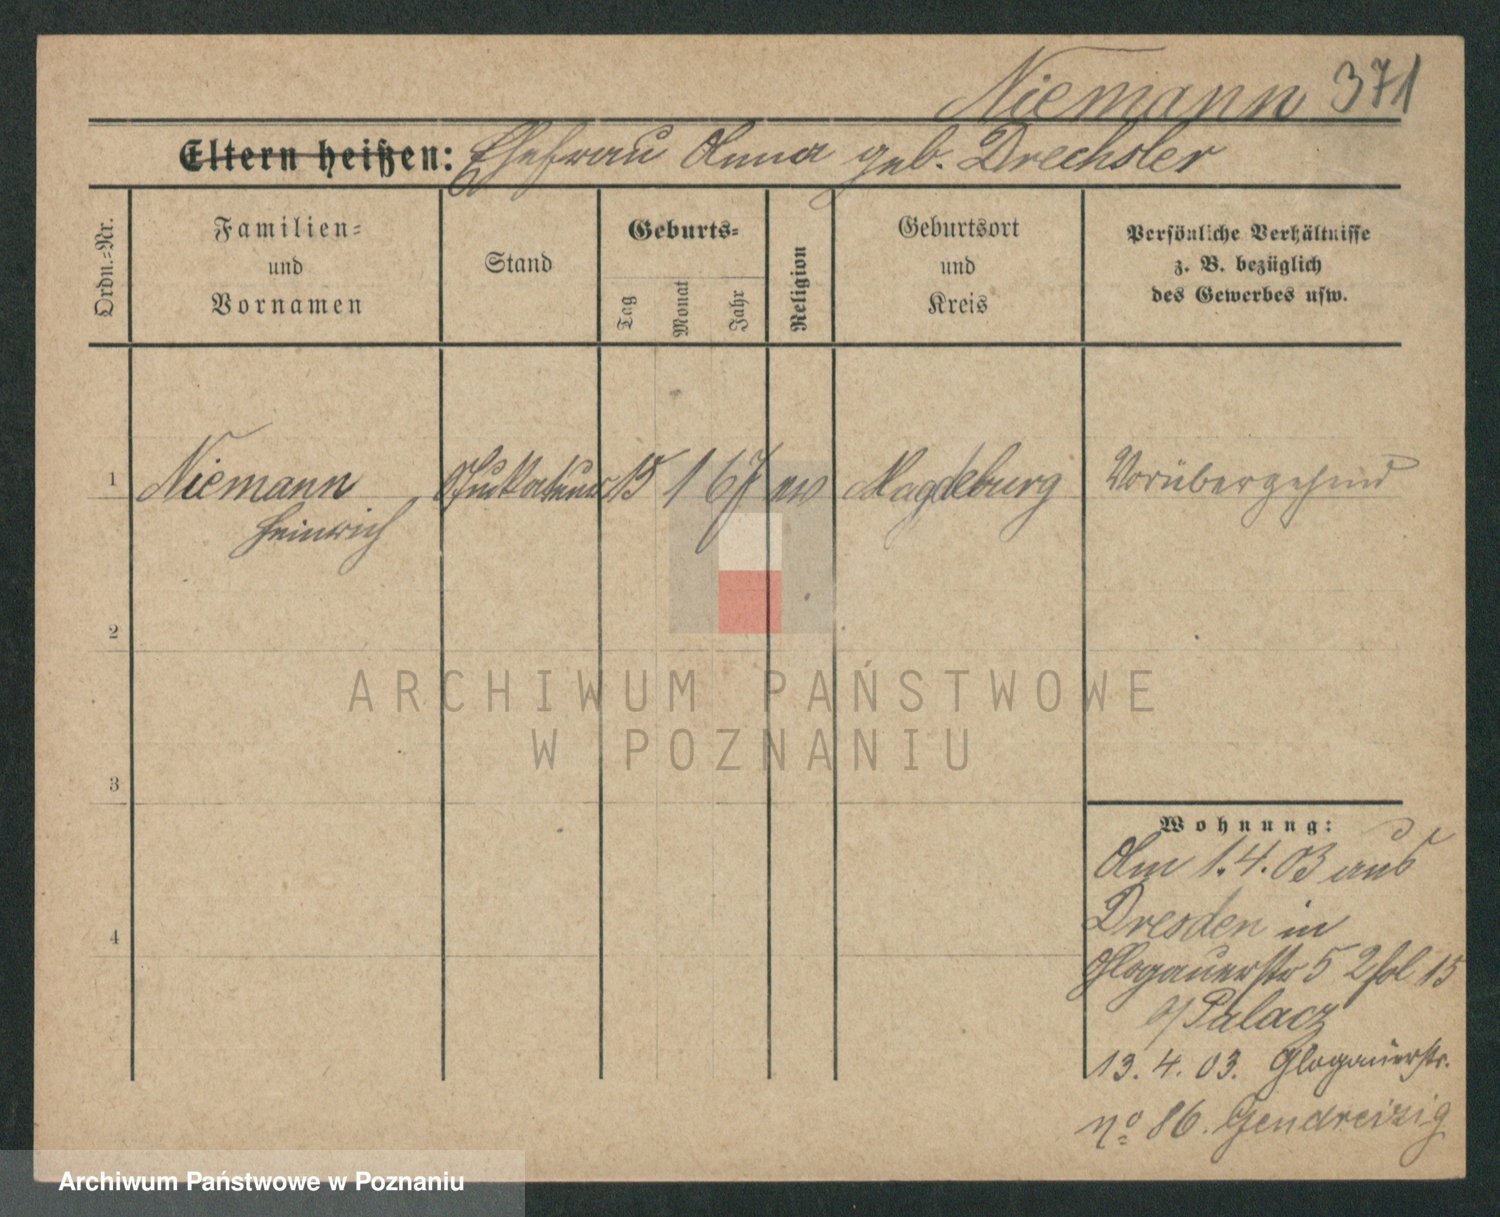 Niemann 371
Eltern heißen: Ehefrau Anna geb. Drechsler
Ordn.-Nr.
Familien-
und
Vornamen
Stand
Geburts-
Tag
Monat
Jahr
Religion
Geburtsort
und
Kreis
Persönliche Verhältnisse
z. B. bezüglich
des Gewerbes usw.
1 Niemann Stuckateur 15 1 67 ev Magdeburg Vorübergehend
Heinrich
2
3
4
ARCHIWUM PAŃSTWOWE
W POZNANIU
Wohnung:
Am 1.4.03 aus
Dresden in
Glogauerstr 5 2
Palacz
13. 4. 03. Glogauerstr.
No 86.
Archiwum Państwowe w Poznaniu